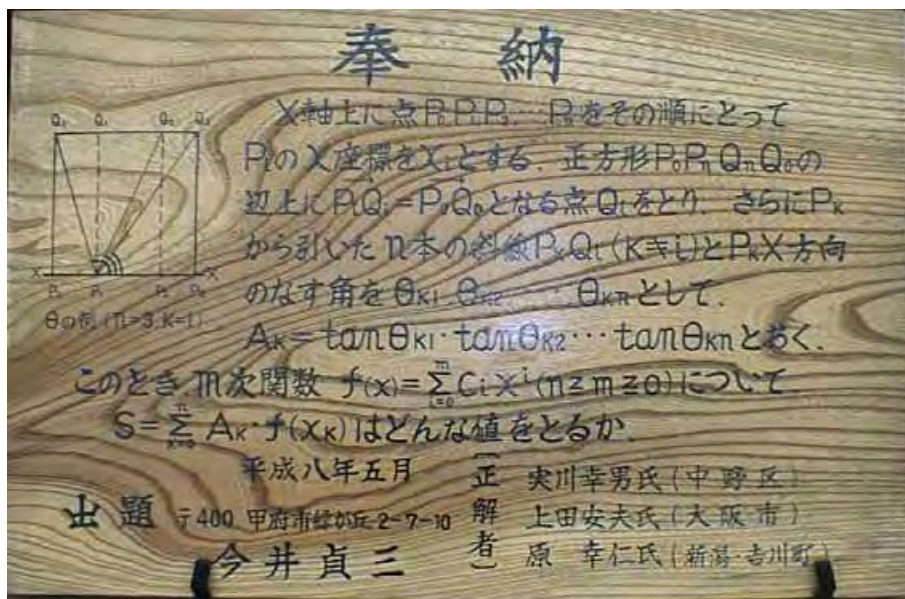 奉 納
X軸上に点P₀P₁P₂…Pₙをその順にとって
Pᵢの X座標をXᵢとする. 正方形P₀PₙQₙQ₀の
辺上にPᵢQᵢ=P₀Q₀となる点Qᵢをとり. さらにPₖ
から引いた n本の斜線PₖQᵢ(K≠i)とPₖX方向
のなす角をθₖ₁.θₖ₂.……θₖₙとして.
Aₖ=tanθₖ₁・tanθₖ₂…tanθₖₙとおく.
このとき. m次関数 f(x)=∑ᵢ₌₀ᵐCᵢxⁱ(n≧m≧0)について
S=∑ₖ₌₀ⁿAₖ・f(xₖ)はどんな値をとるか.
Q₀ Q₁ Q₂ Q₃
X X
P₀ P₁ P₂ P₃
θの例(n=3.K=1)
平成八年五月
出 題 〒400 甲府市緑が丘2-7-10
今井貞三
(正解者)
実川幸男氏(中野区)
上田安夫氏(大阪市)
原 幸仁氏(新潟・吉川町)